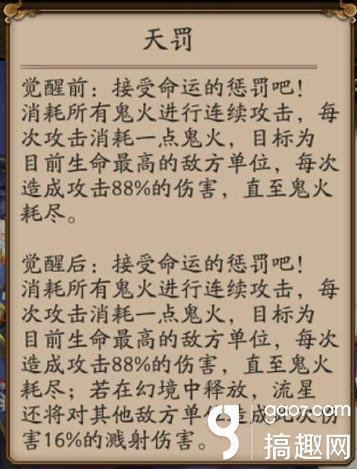 天罚
觉醒前：接受命运的惩罚吧！
消耗所有鬼火进行连续攻击，每
次攻击消耗一点鬼火，目标为
目前生命最高的敌方单位，每次
造成攻击88%的伤害，直至鬼火
耗尽。
觉醒后：接受命运的惩罚吧！
消耗所有鬼火进行连续攻击，每
次攻击消耗一点鬼火，目标为
目前生命最高的敌方单位，每次
造成攻击88%的伤害，直至鬼火
耗尽；若在幻境中释放，流星
还将对其他敌方单位造成此次伤
害16%的溅射伤害。
gao7.com
搞趣网